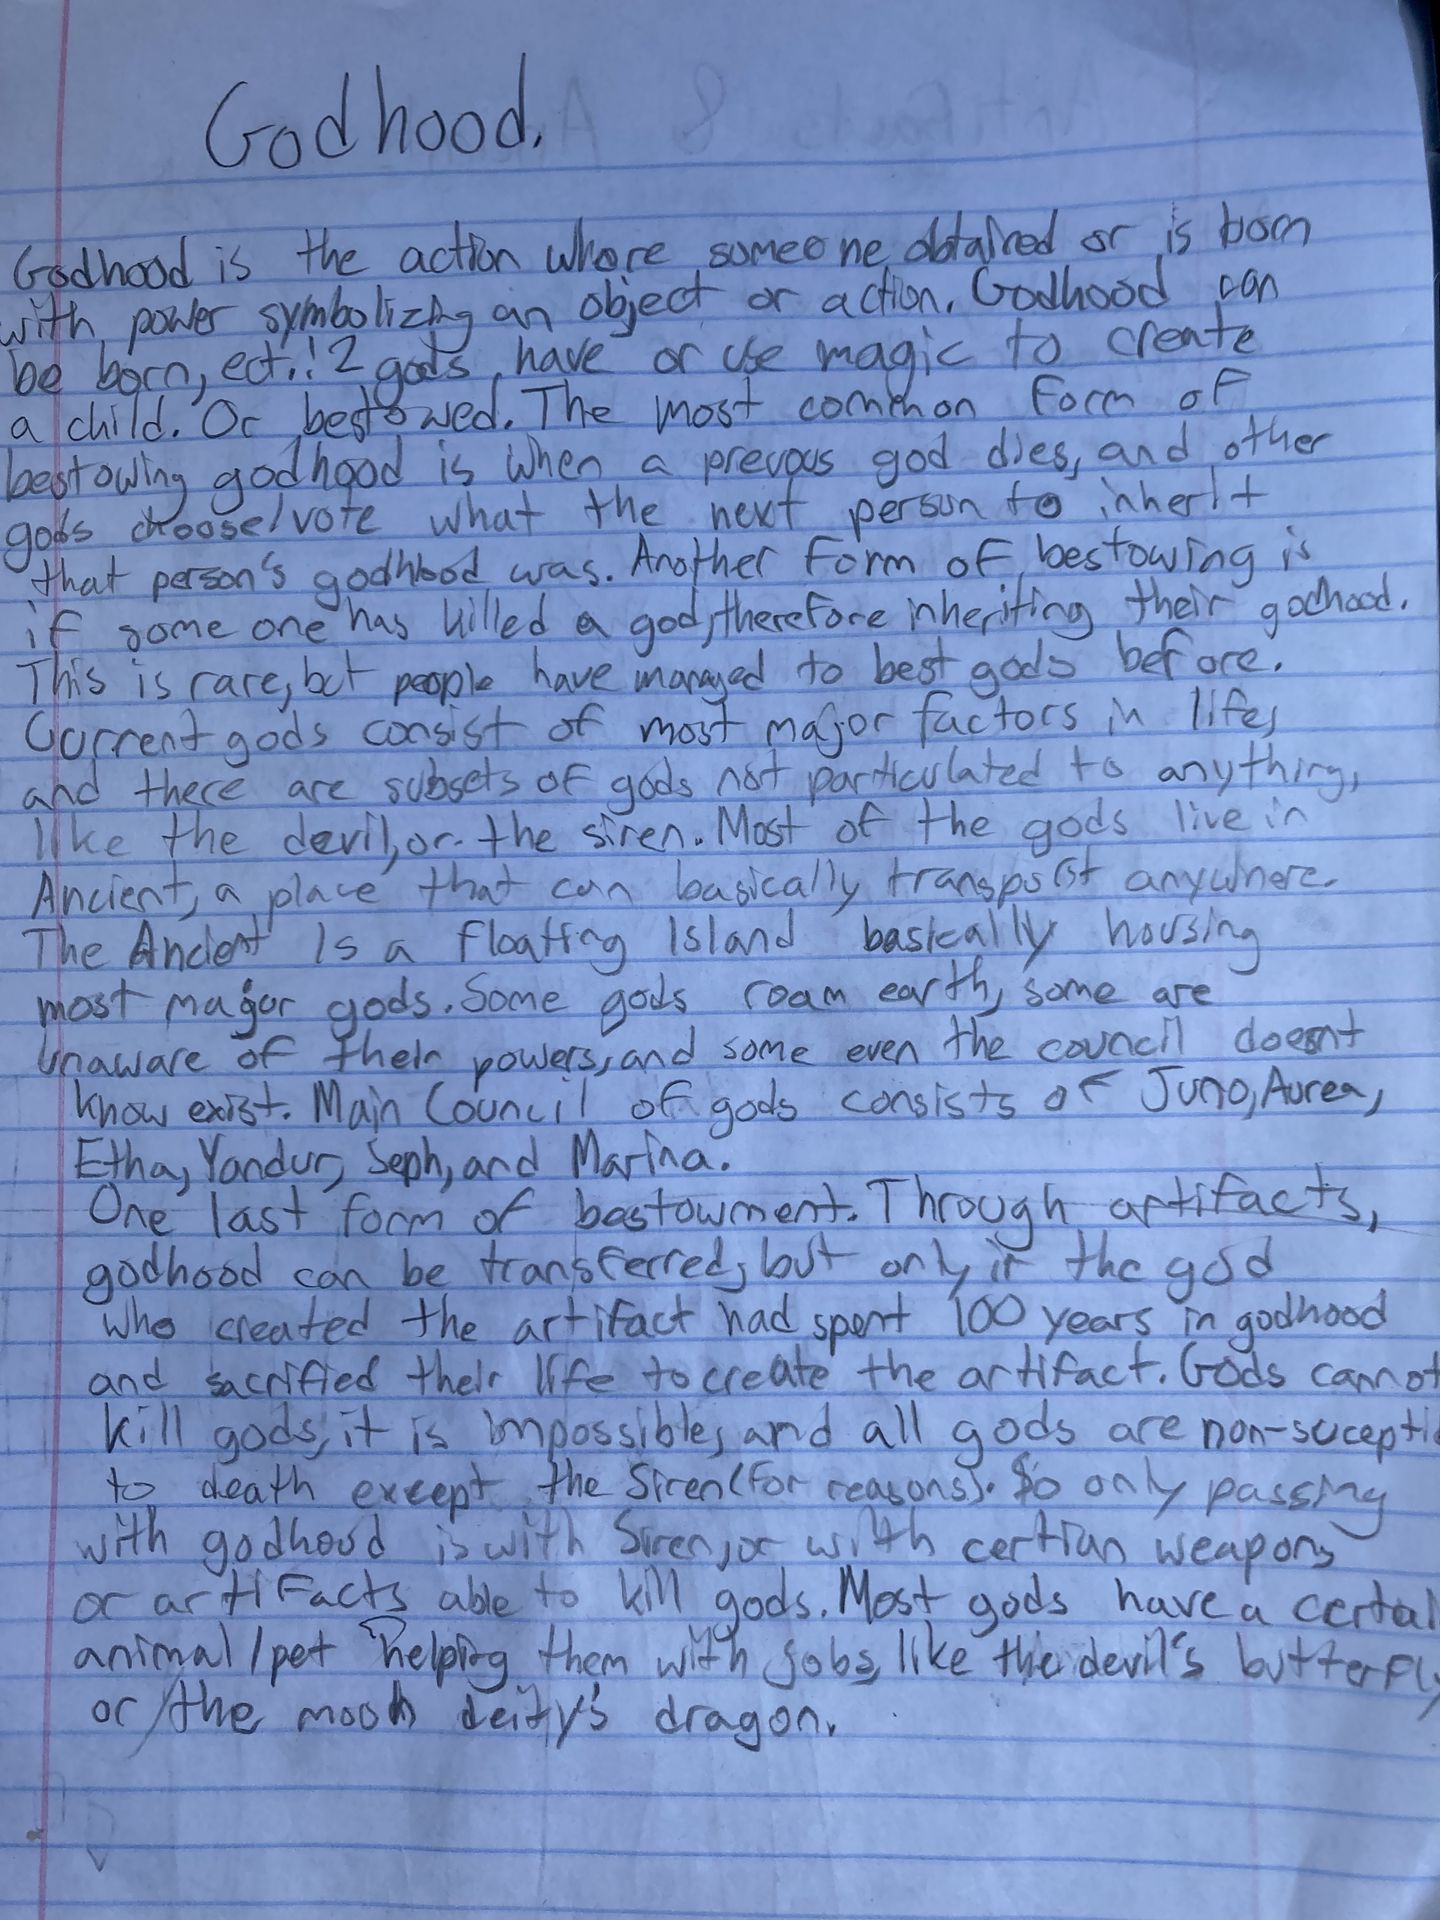 Godhood.
Godhood is the action where someone obtained or is born
with power symbolizing an object or action. Godhood can
be born, ect.: 2 gods have or use magic to create
a child. Or bestowed. The most common form of
bestowing godhood is when a prevous god dies, and other
gods choose/vote what the next person to inherit
that person's godhood was. Another form of bestowing is
if some one has killed a god, therefore inheriting their godhood.
This is rare, but people have managed to best gods before.
Current gods consist of most major factors in life,
and there are subsets of gods not particulated to anything,
like the devil, or the siren. Most of the gods live in
Ancient, a place that can basically transport anywhere.
The Ancient Is a floating Island basically housing
most major gods. Some gods roam earth, some are
unaware of their powers, and some even the council doesnt
know exist. Main Council of gods consists of Juno, Aurea,
Etha, Yandur, Seph, and Marina.
One last form of bestowment. Through artifacts,
godhood can be transferred, but only if the god
who created the artifact had spent 100 years in godhood
and sacrified their life to create the artifact. Gods cannot
kill gods, it is impossible, and all gods are non-sucepti
to death except the Siren (for reasons). So only passing
with godhood is with Siren, or with certian weapons
or artifacts able to kill gods. Most gods have a certai
animal/pet helping them with jobs, like the devil's butterfly
or the moon deity's dragon.